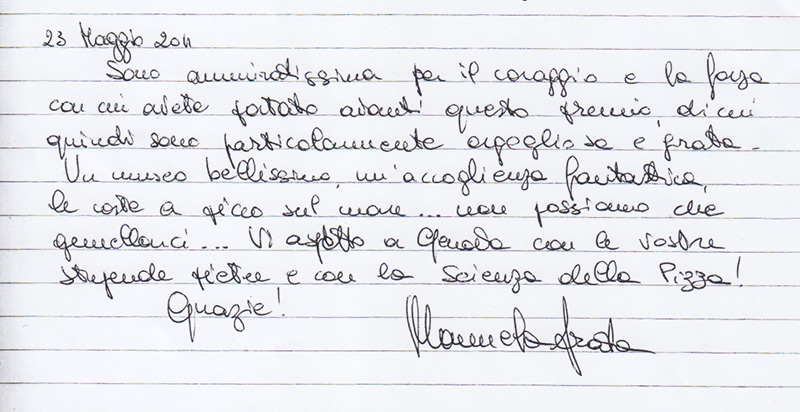 23 Maggio 2011
Sono ammiratissima per il coraggio e la forza
con cui avete portato avanti questo premio, di cui
quindi sono particolarmente orgogliosa e grata.
Un museo bellissimo, un'accoglienza fantastica,
le coste a picco sul mare... non possiamo che
gemellarci... Vi aspetto a Genova con le vostre
stupende pietre e con la Scienza della Pizza!
Grazie!
Manuela Arata